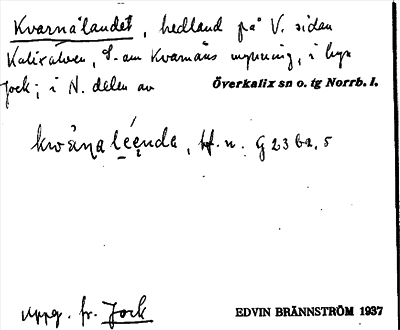 Kvarnålandet, hedland på V. sidan
Kalixälven, S. om Kvarnåns mynning, i byn
Jock; i N. delen av Överkalix sn o. tg Norrb. l.
kwåṇaléenda, hf. n. G 23 ba, 5
uppg. fr. Jock EDVIN BRÄNNSTRÖM 1937